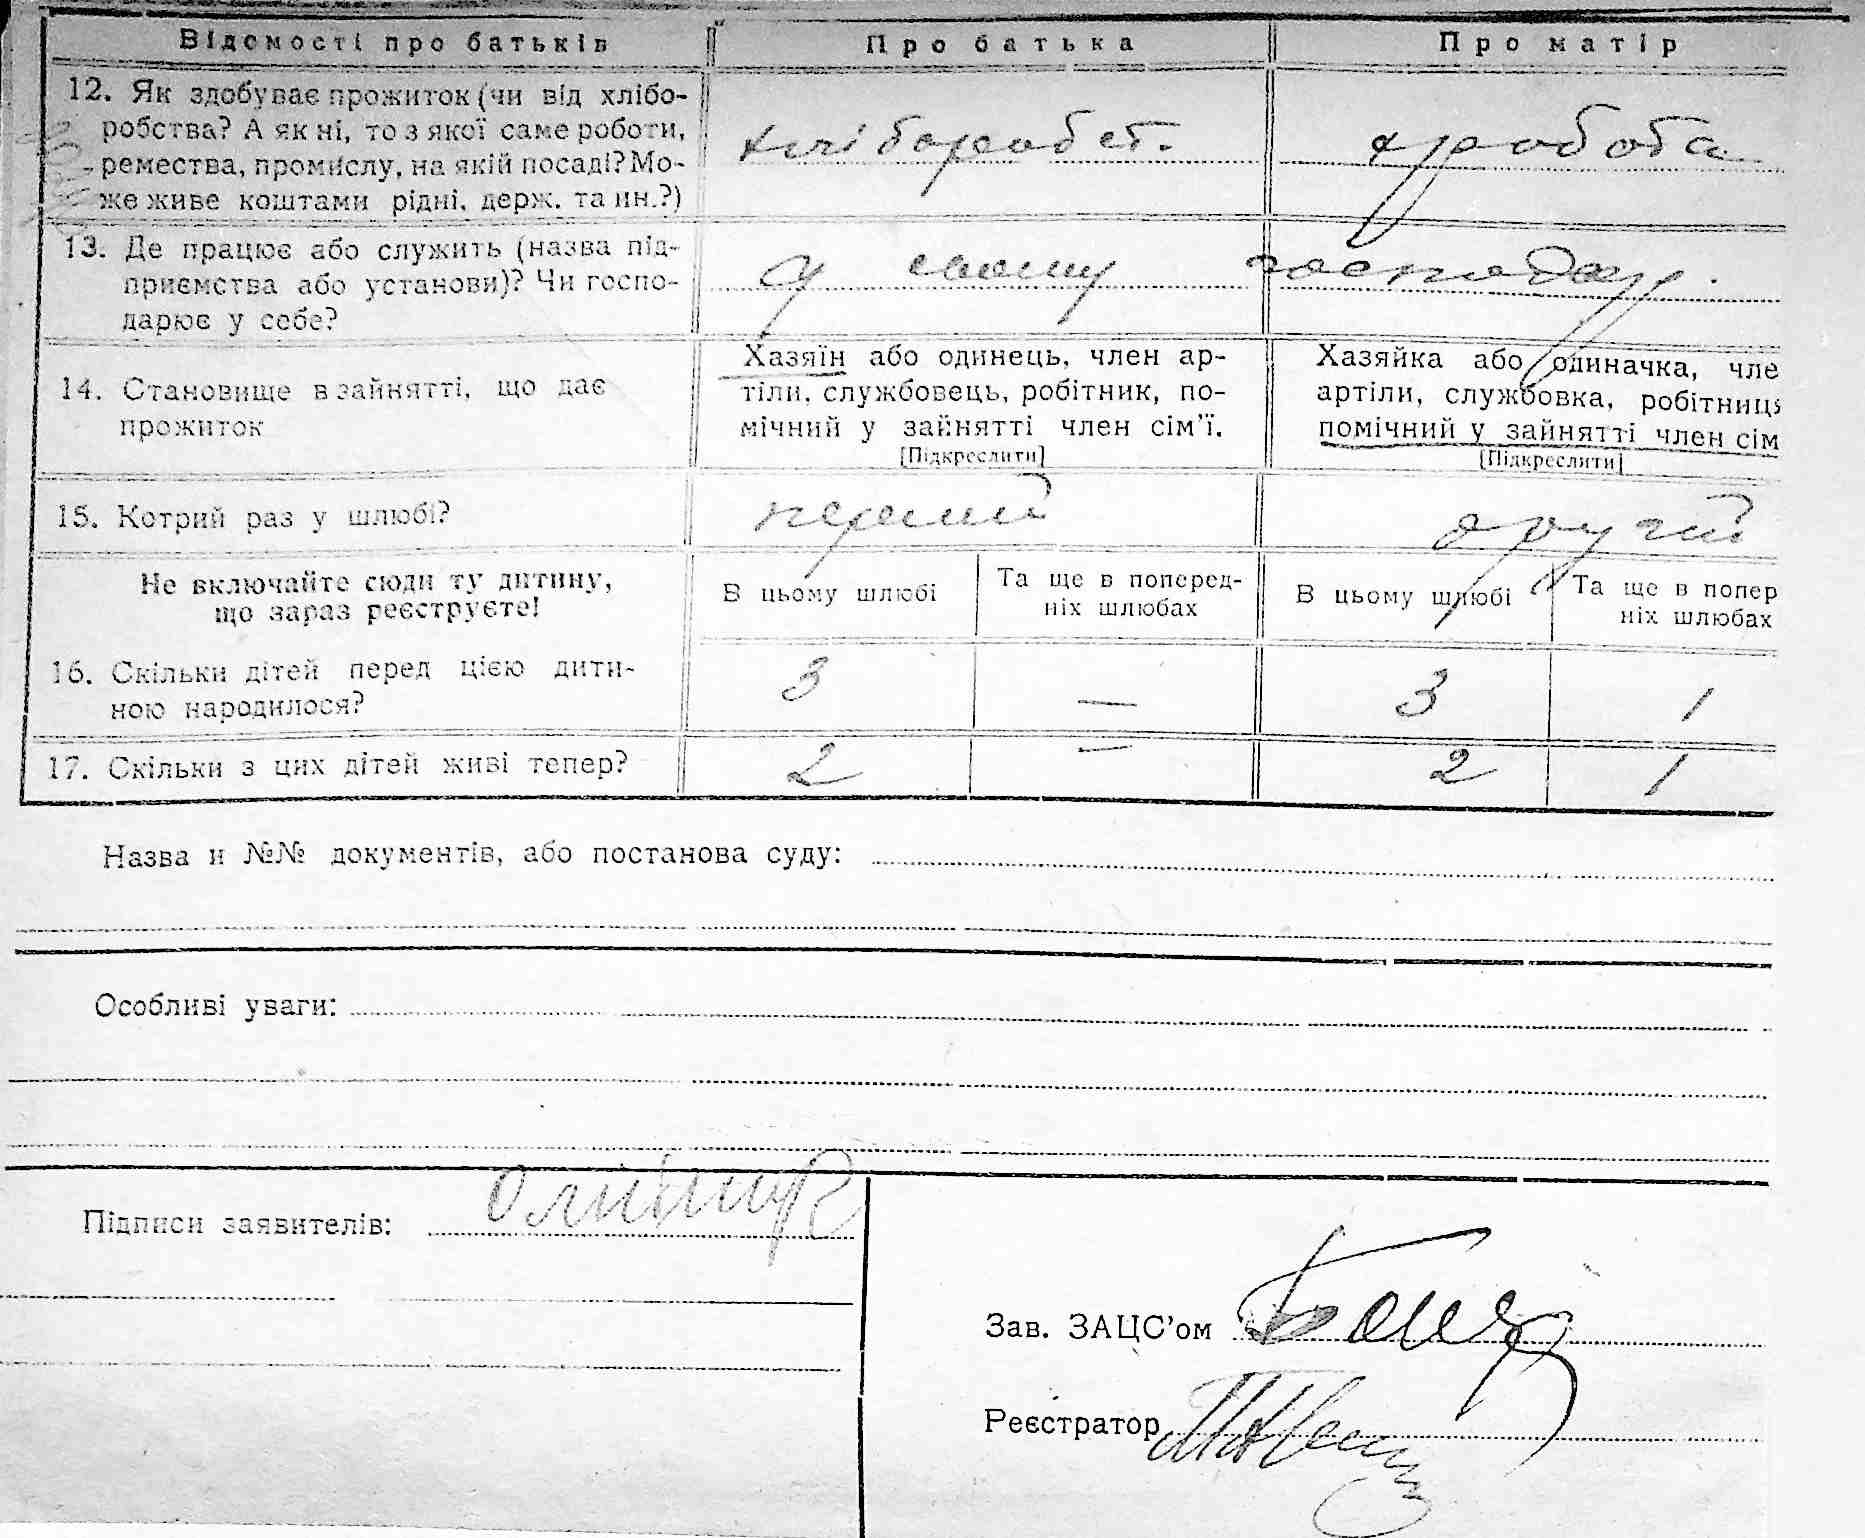 Відомості про батьків Про батька Про матір
12. Як здобуває прожиток (чи від хлібо-
робства? А як ні, то з якої саме роботи,
ремества, промислу, на якій посаді? Мо-
же живе коштами рідні, держ. та ин.?)
хлібороб
13. Де працює або служить (назва під-
приємства або установи)? Чи госпо-
дарює у себе?
у свому господар.
14. Становище в зайнятті, що дає
прожиток
Хазяїн або одинець, член ар-
тіли, службовець, робітник, по-
мічний у зайнятті член сім'ї.
[Підкреслити]
Хазяйка або одиначка, чле
артіли, службовка, робітниц
помічний у зайнятті член сім
[Підкреслити]
15. Котрий раз у шлюбі? перший другий
Не включайте сюди ту дитину,
що зараз реєструєте!
В цьому шлюбі
Та ще в поперед-
ніх шлюбах
В цьому шлюбі
Та ще в попер
ніх шлюбах
16. Скільки дітей перед цією дити-
ною народилося?
3 — 3 1
17. Скільки з цих дітей живі тепер? 2 — 2 1
Назва и №№ документів, або постанова суду:
Особливі уваги:
Підписи заявителів:
Зав. ЗАЦС'ом
Реєстратор